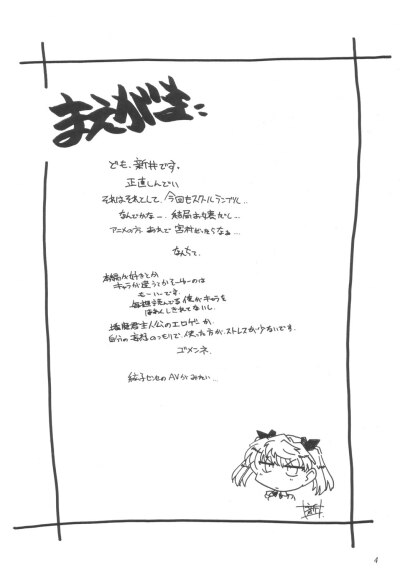 まえがき:
ども、新井です。
正直しんどい
それはそれとして、今回もスクールランブル…
なんでかなー、結局お嬢だし…
アニメの方、あれで
なんちて。
本編が好きとか
キャラが違うとかそーゆーのは
もーいーです。
毎週読んでる僕がキャラを
はあくしきれてないし。
播磨君主人公のエロゲーが、
自分の妄想のつもりで、使った方が、ストレスが少ないです。
ゴメンネ。
絃子センセのAVがみたい…
新井
4